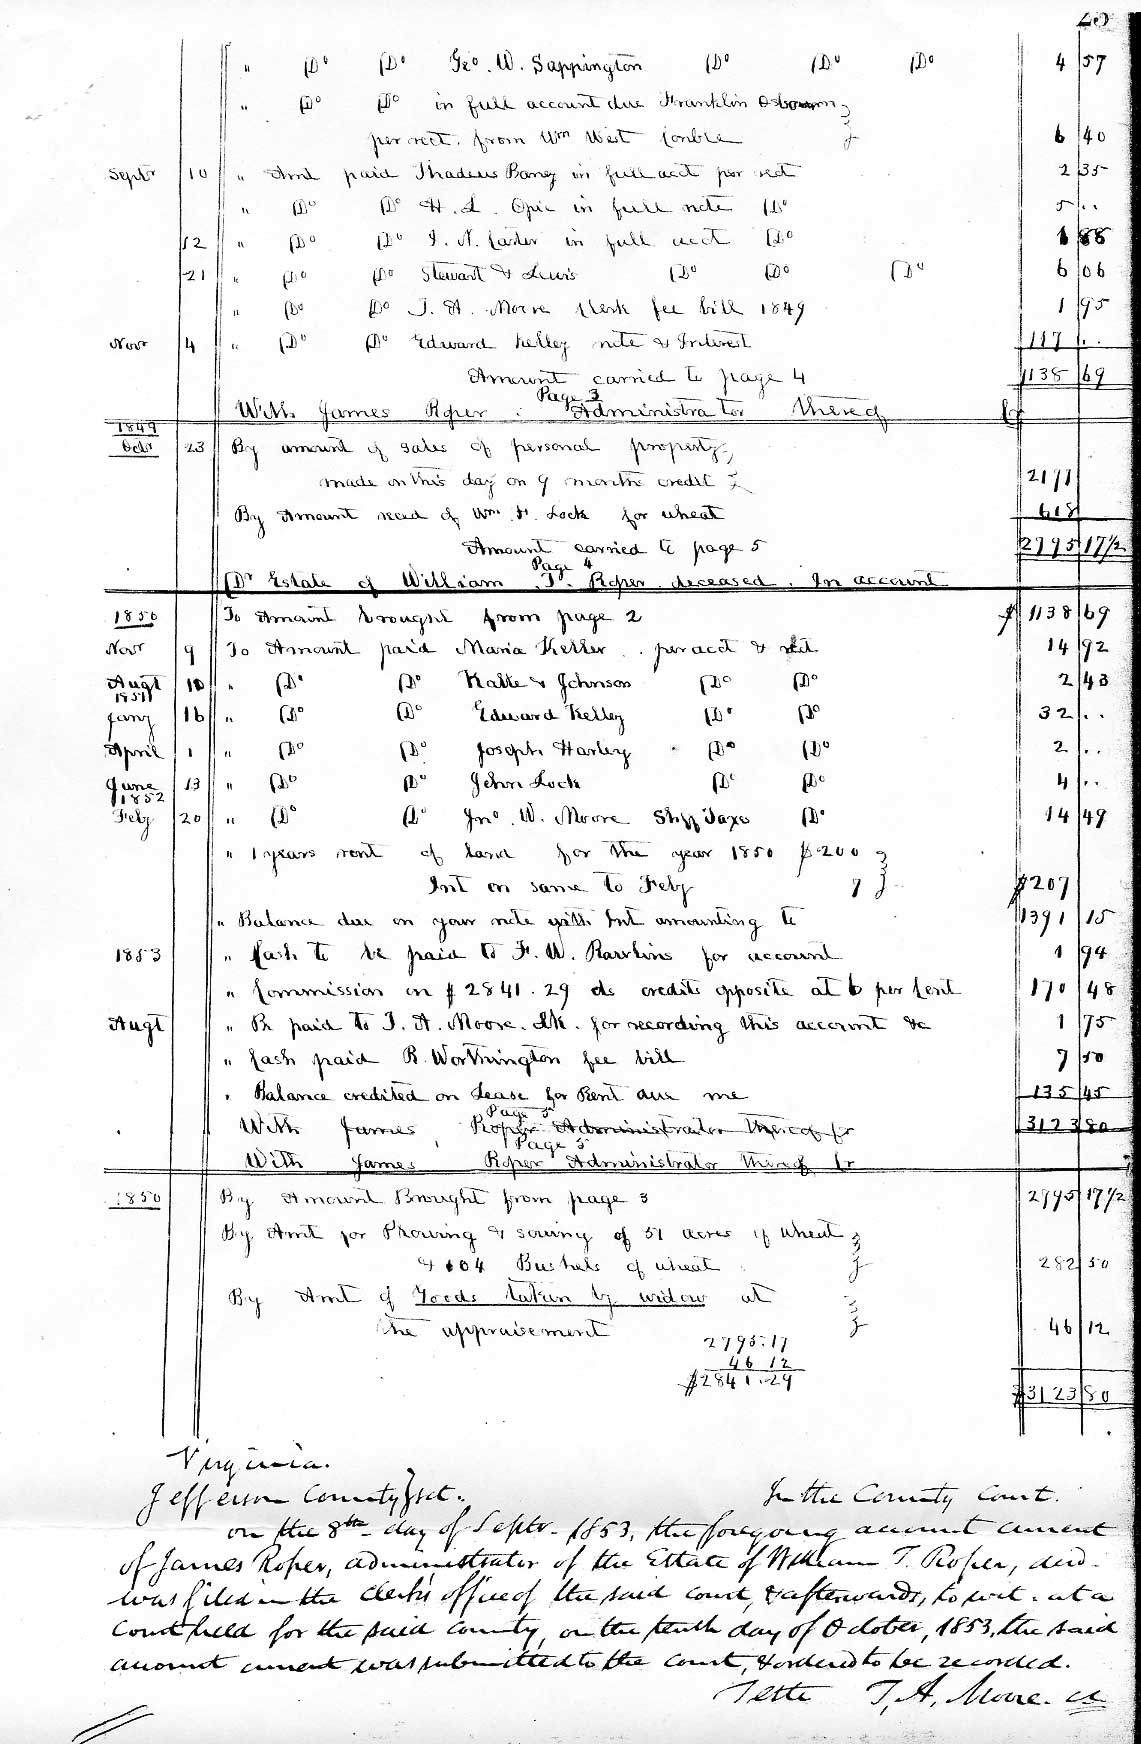 " Do Do Geo. W. Sappington Do Do Do 4 57
" Do Do in full account due Franklin Osbourn
per rect. from Wm West Conble 6 40
Septr 10 " Amt paid Thadeus Baney in full acct per rect 2 35
" Do Do H. L. Opie in full note Do 5 ..
12 " Do Do J. N. Carter in full acct Do 1 88
21 " Do Do Stewart & Lewis Do Do Do 6 06
" Do Do T. A. Moore Clerk fee bill 1849 1 95
Novr 4 " Do Do Edward Kelley note & Interest 117 ..
Amount carried to page 4 1138 69
Page 3
With James Roper : Administrator thereof Cr
1849
Octr 23 By amount of sales of personal property
made on this day on 9 months credit 2177
By Amount recd of Wm. F. Lock for wheat 618
Amount carried to page 5 2795 17½
Page 4
Dr Estate of William T. Roper deceased. In account
1850 To Amount brought from page 2 $ 1138 69
Novr 9 To Amount paid Maria Keller . per acct & rect 14 92
Augt 10 " Do Do Kalke & Johnson Do Do 2 43
1851
Jany 16 " Do Do Edward Kelley Do Do 32 ..
April 1 " Do Do Joseph Harley Do Do 2 ..
June 13 " Do Do John Lock Do Do 4 ..
1852
Feby 20 " Do Do Jno. W. Moore Shff Taxs Do 14 49
" 1 years rent of land for the year 1850 $200
Int on same to Feby 7 $207
" Balance due on your note with Int amounting to 1391 15
1853 " Cash to be paid to F. W. Rawlins for account 1 94
" Commission on $2841.29 cts credits opposite at 6 per Cent 170 48
Augt " Pr paid to T. A. Moore. Clk. for recording this account &c 1 75
" Cash paid R. Worthington fee bill 7 50
" Balance credited on Lease for Rent due me 135 45
Page 5
With James Roper Administrator thereof Cr 3123 80
Page 5
With James Roper Administrator thereof Cr
1850 By Amount Brought from page 3 2795 17½
By Amt for Plowing & sowing of 51 acres of wheat
& 104 Bushels of wheat 282 50
By Amt of Goods taken by widow at
the appraisement 46 12
2795.17
46 12
$2841.29
$3123 80
Virginia.
Jefferson County} sct. In the County Court.
on the 8th day of Septr. 1853, the foregoing account current
of James Roper, administrator of the Estate of William T. Roper, decd.
was filed in the Clerk's office of the said court, & afterwards, to wit. at a
Court held for the said county, on the tenth day of October, 1853, the said
account current was submitted to the court, & ordered to be recorded.
Teste T. A. Moore. clk